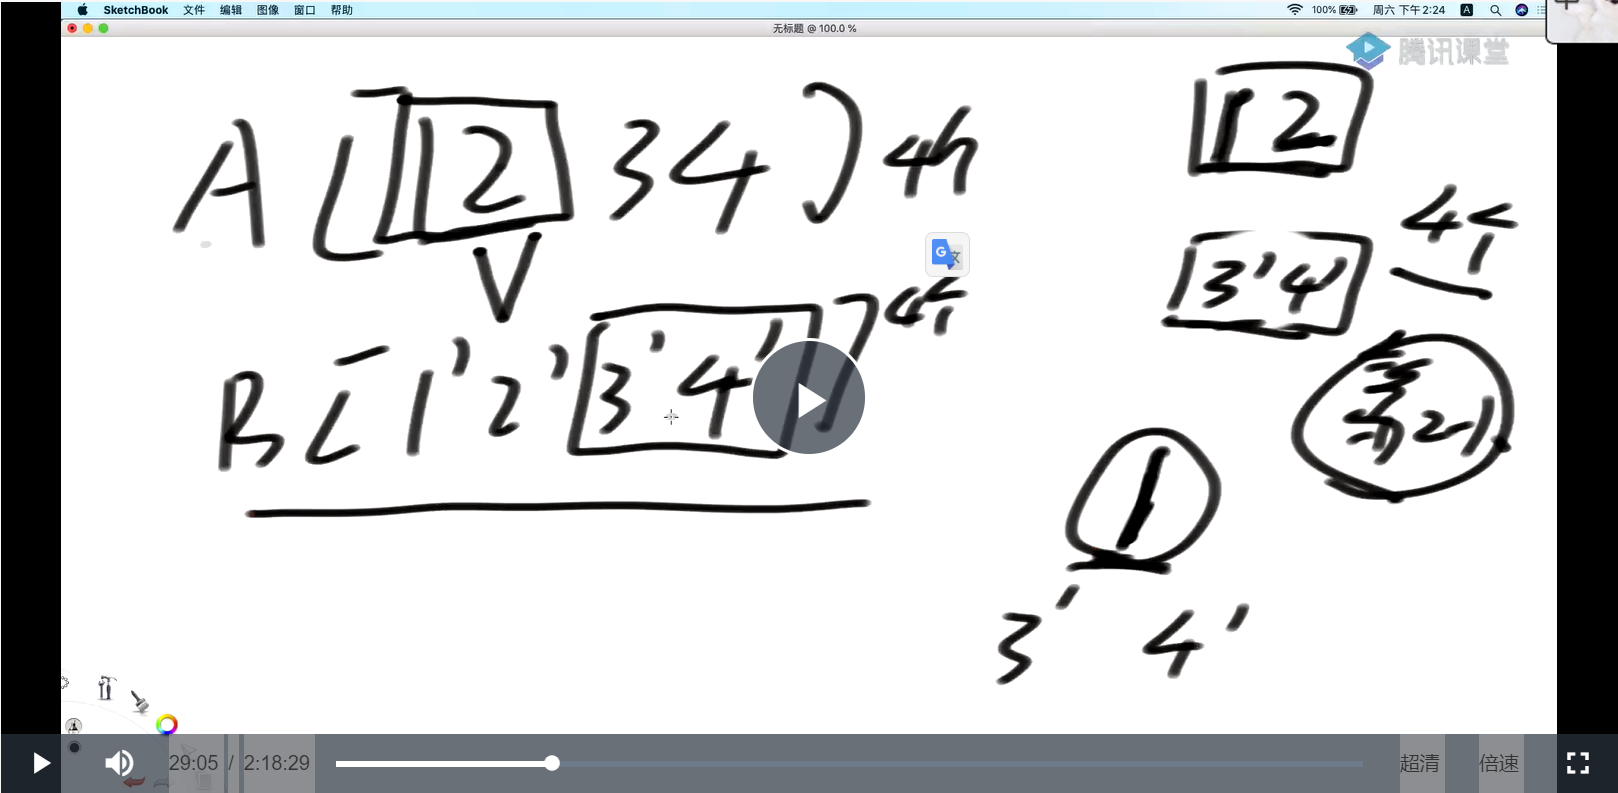 SketchBook 文件 编辑 图像 窗口 帮助
100% 周六 下午2:24 A
无标题 @ 100.0 %
腾讯课堂
A [ 1 2 3 4 ] 4h
1 2
V
3' 4' 4个
B [ 1' 2' 3' 4' ] 4个
第2小
1
3' 4'
29:05 / 2:18:29
超清 倍速